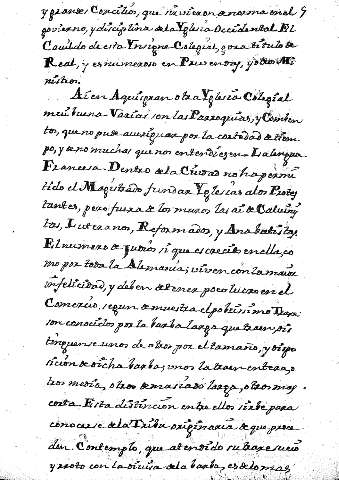 y grandes Concilios, que sirvieron de norma en el
govierno, y disciplina de la Yglesia Occidental El
Cavildo de esta Ynsigne Colegial, goza titulo de
Real, y es numeroso en Prevendas, y otros Mi
nistros.
Ai en Aquisgran otra Yglesia Colegial
mui buena Varias son las Parroquias, y Comben
tos, que no pude averiguar por la cortedad de tiem
po, y a no muchos que nos entendiesen La lengua
Francesa. Dentro de la Ciudad no ha permi
tido el Magistrado fundar Yglesias a los Protes
tantes, pero fuera de los muros las ai de Calvinis
tas, Luteranos, Reformados, y Anabatistas.
El numero de Judios si que es crecido en ella, co
mo por toda la Alemania; viven con la maior
infelicidad, y deben de tener poco lucro en el
Comercio, segun demuestra el pobrisimo
son conocidos por la barba larga que traen, dis
tinguense unos de otros por el tamaño, y dispo
sicion de dicha barba; unos la traen entera, o
tros media, otros demasiado larga, otros mas
corta Esta distincion entre ellos sirbe para
conocerse de la Tribu originaria de que proce
den Contemplo, que atendido su traxe sucio
y roto con la divisa de la barba, es de lo mas